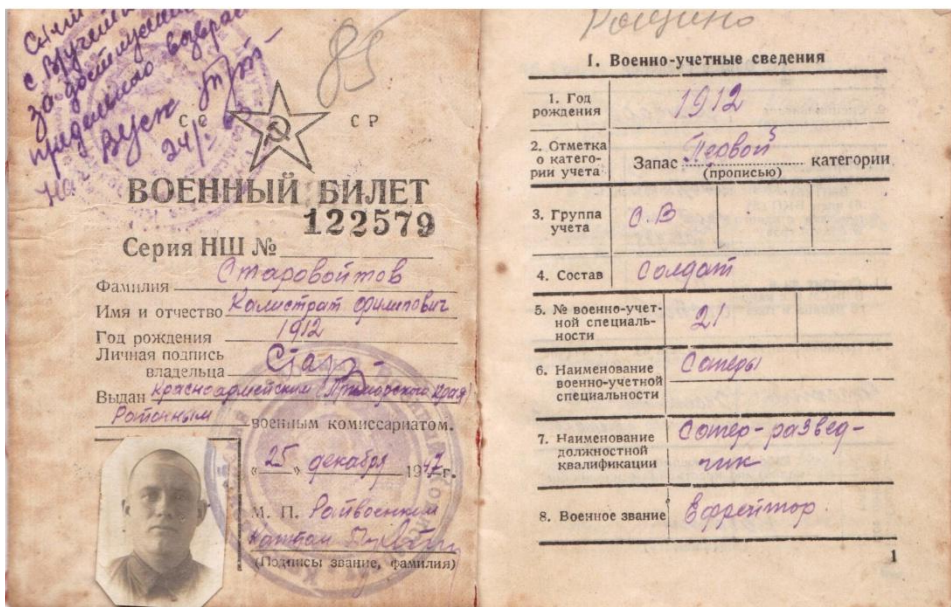 с вручением
за достижением
предельного возраста
85
С С С Р
ВОЕННЫЙ БИЛЕТ
122579
Серия НШ №
Фамилия Старовойтов
Имя и отчество Калистрат Филипович
Год рождения 1912
Личная подпись
владельца Стар
Выдан Красноармейским Приморского края
Районным военным комиссариатом.
«25» декабря 1947 г.
М. П. Райвоенком
(Подписы звание, фамилия)
Рощино
I. Военно-учетные сведения
1. Год
рождения 1912
2. Отметка
о катего-
рии учета Запас Первой категории
(прописью)
3. Группа
учета С.В
4. Состав Солдат
5. № военно-учет-
ной специаль-
ности 21
6. Наименование
военно-учетной
специальности Саперы
7. Наименование
должностной
квалификации Сапер-развед-
чик
8. Военное звание Ефрейтор
1